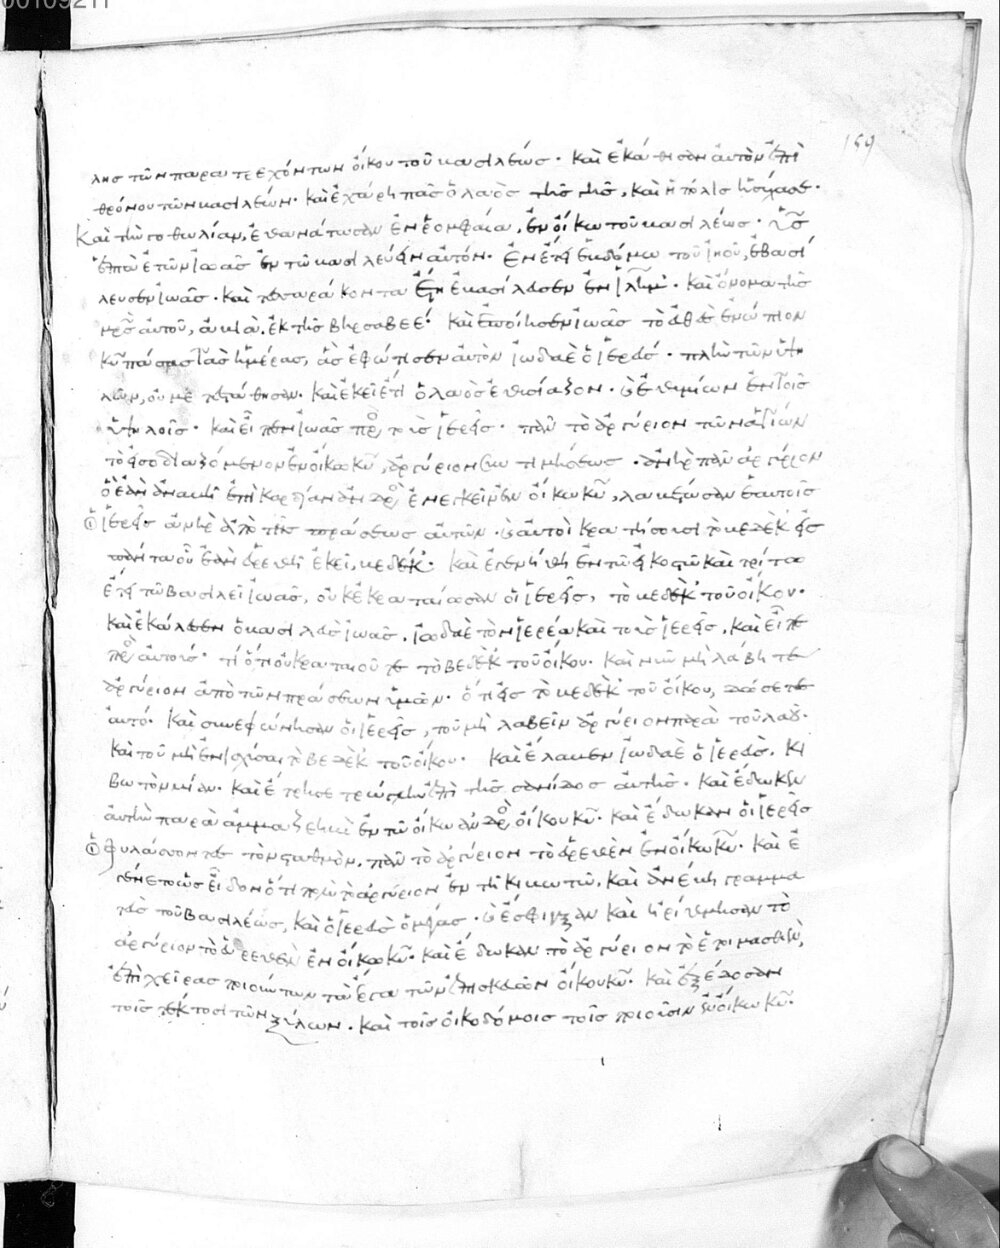 00109211
159
λης τῶν παρατρεχόντων οἴκου τοῦ βασιλέως· καὶ ἐκάθισαν αὐτὸν ἐπὶ
θρόνου τῶν βασιλέων· καὶ ἐχάρη πᾶς ὁ λαὸς τῆς γῆς, καὶ ἡ πόλις ἡσύχασε·
Καὶ τὴν γοθωλίαν, ἐθανάτωσαν ἐν ῥομφαία, ἐν οἴκω τοῦ βασιλέως· υἱὸς
ἑπτὰ ἐτῶν ἰωὰς ἐν τῶ βασιλεύειν αὐτόν· Ἐν ἔτει ἑβδόμω τοῦ ἰηοῦ, ἐβασί
λευσεν ἰωὰς· καὶ τεσσαράκοντα ἔτη ἐβασίλευσεν ἐν ἰλημ· καὶ ὄνομα τῆς
μρς αὐτοῦ, ἀβιὰ ἐκ τῆς βηρσαβεέ· καὶ ἐποίησεν ἰωὰς τὸ εὐθὲς ἐνώπιον
κυ πάσας τὰς ἡμέρας, ἃς ἐφώτισεν αὐτὸν ἰωδαὲ ὁ ἱερεύς· πλὴν τῶν ὑψη
λῶν, οὐ μετεστάθησαν· καὶ ἐκεῖ ἔτι ὁ λαὸς ἐθυσίαζον· καὶ ἐθυμίων ἐν τοῖς
ὑψηλοῖς· καὶ εἶπεν ἰωὰς πρὸς τοὺς ἱερεῖς· πᾶν τὸ ἀργύριον τῶν ἁγίων
τὸ εἰσοδιαζόμενον ἐν οἴκω κυ, ἀργύριον συντιμήσεως· ἀνὴρ πᾶν ἀργύριον
ὃ ἐὰν ἀναβῆ ἐπὶ καρδίαν ἀνδρὸς ἐνεγκεῖν ἐν οἴκω κυ, λαβέτωσαν ἑαυτοῖς
οἱ ἱερεῖς ἀνὴρ ἀπὸ τῆς πράσεως αὐτῶν· καὶ αὐτοὶ κρατήσουσι τὸ βεδὲκ εἰς
πάντα οὗ ἐὰν εὑρεθῆ ἐκεῖ, βεδέκ· καὶ ἐγενήθη ἐν τῶ εἰκοστῶ καὶ τρίτω
ἔτει τῶ βασιλεῖ ἰωὰς, οὐκ ἐκραταίωσαν οἱ ἱερεῖς, τὸ βεδὲκ τοῦ οἴκου·
καὶ ἐκάλεσεν ὁ βασιλεὺς ἰωὰς, ἰωδαὲ τὸν ἱερέα καὶ τοὺς ἱερεῖς, καὶ εἶπε
πρὸς αὐτοὺς· τί ὅτι οὐκ ραταιοῦτε τὸ βεδὲκ τοῦ οἴκου· καὶ νῦν μὴ λάβητε
ἀργύριον ἀπὸ τῶν πράσεων ὑμῶν· ὅτι εἰς τὸ βεδὲκ τοῦ οἴκου, δώσετε
αὐτό· καὶ συνεφώνησαν οἱ ἱερεῖς, τοῦ μὴ λαβεῖν ἀργύριον παρὰ τοῦ λαοῦ·
καὶ τοῦ μὴ ἐνισχύσαι τὸ βεδὲκ τοῦ οἴκου· καὶ ἔλαβεν ἰωδαὲ ὁ ἱερεὺς, κι
βωτὸν μίαν· καὶ ἔτρησε τρώγλην ἐπὶ τῆς σανίδος αὐτῆς· καὶ ἔδωκεν
αὐτὴν παρὰ ἀμμαζειβὶ ἐν τῶ οἴκω ἀνδρὸς οἴκου κυ· καὶ ἔδωκαν οἱ ἱερεῖς
οἱ φυλάσσοντες τὸν σταθμὸν, πᾶν τὸ ἀργύριον τὸ εὑρεθὲν ἐν οἴκω κυ· καὶ ἐ
γένετο ὡς εἶδον ὅτι πολὺ τὸ ἀργύριον ἐν τῆ κιβωτῶ, καὶ ἀνέβη γραμμα
τεὺς τοῦ βασιλέως, καὶ ὁ ἱερεὺς ὁ μέγας· καὶ ἔσφιγξαν καὶ ἠρίθμησαν τὸ
ἀργύριον τὸ εὑρεθὲν ἐν οἴκω κυ· καὶ ἔδωκαν τὸ ἀργύριον τὸ ἑτοιμασθὲν,
ἐπὶ χεῖρας ποιούντων τὰ ἔργα τῶν ἐπισκόπων οἴκου κυ· καὶ ἐξέδοσαν
τοῖς τέκτοσι τῶν ξύλων· καὶ τοῖς οἰκοδόμοις τοῖς ποιοῦσιν ἐν οἴκω κυ·